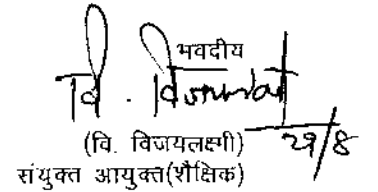 भवदीय
वि.
29/8
(वि. विजयलक्ष्मी)
संयुक्त आयुक्त(शैक्षिक)